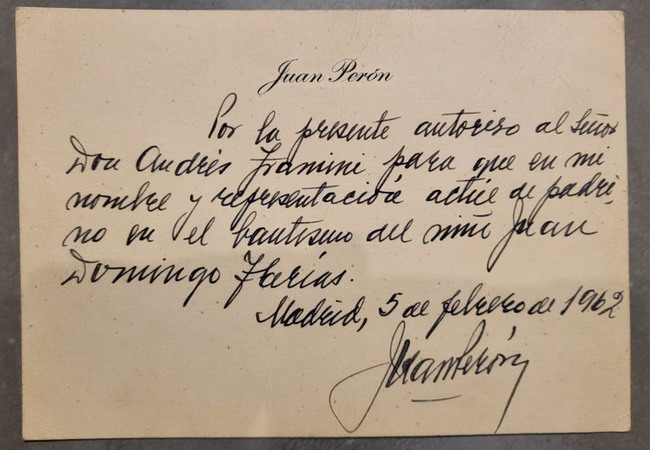 Juan Perón
Por la presente autorizo al Señor
Don Andrés Framini para que en mi
nombre y representación actúe de padri-
no en el bautismo del niño Juan
Domingo Farías.
Madrid, 5 de febrero de 1962
Juan Perón